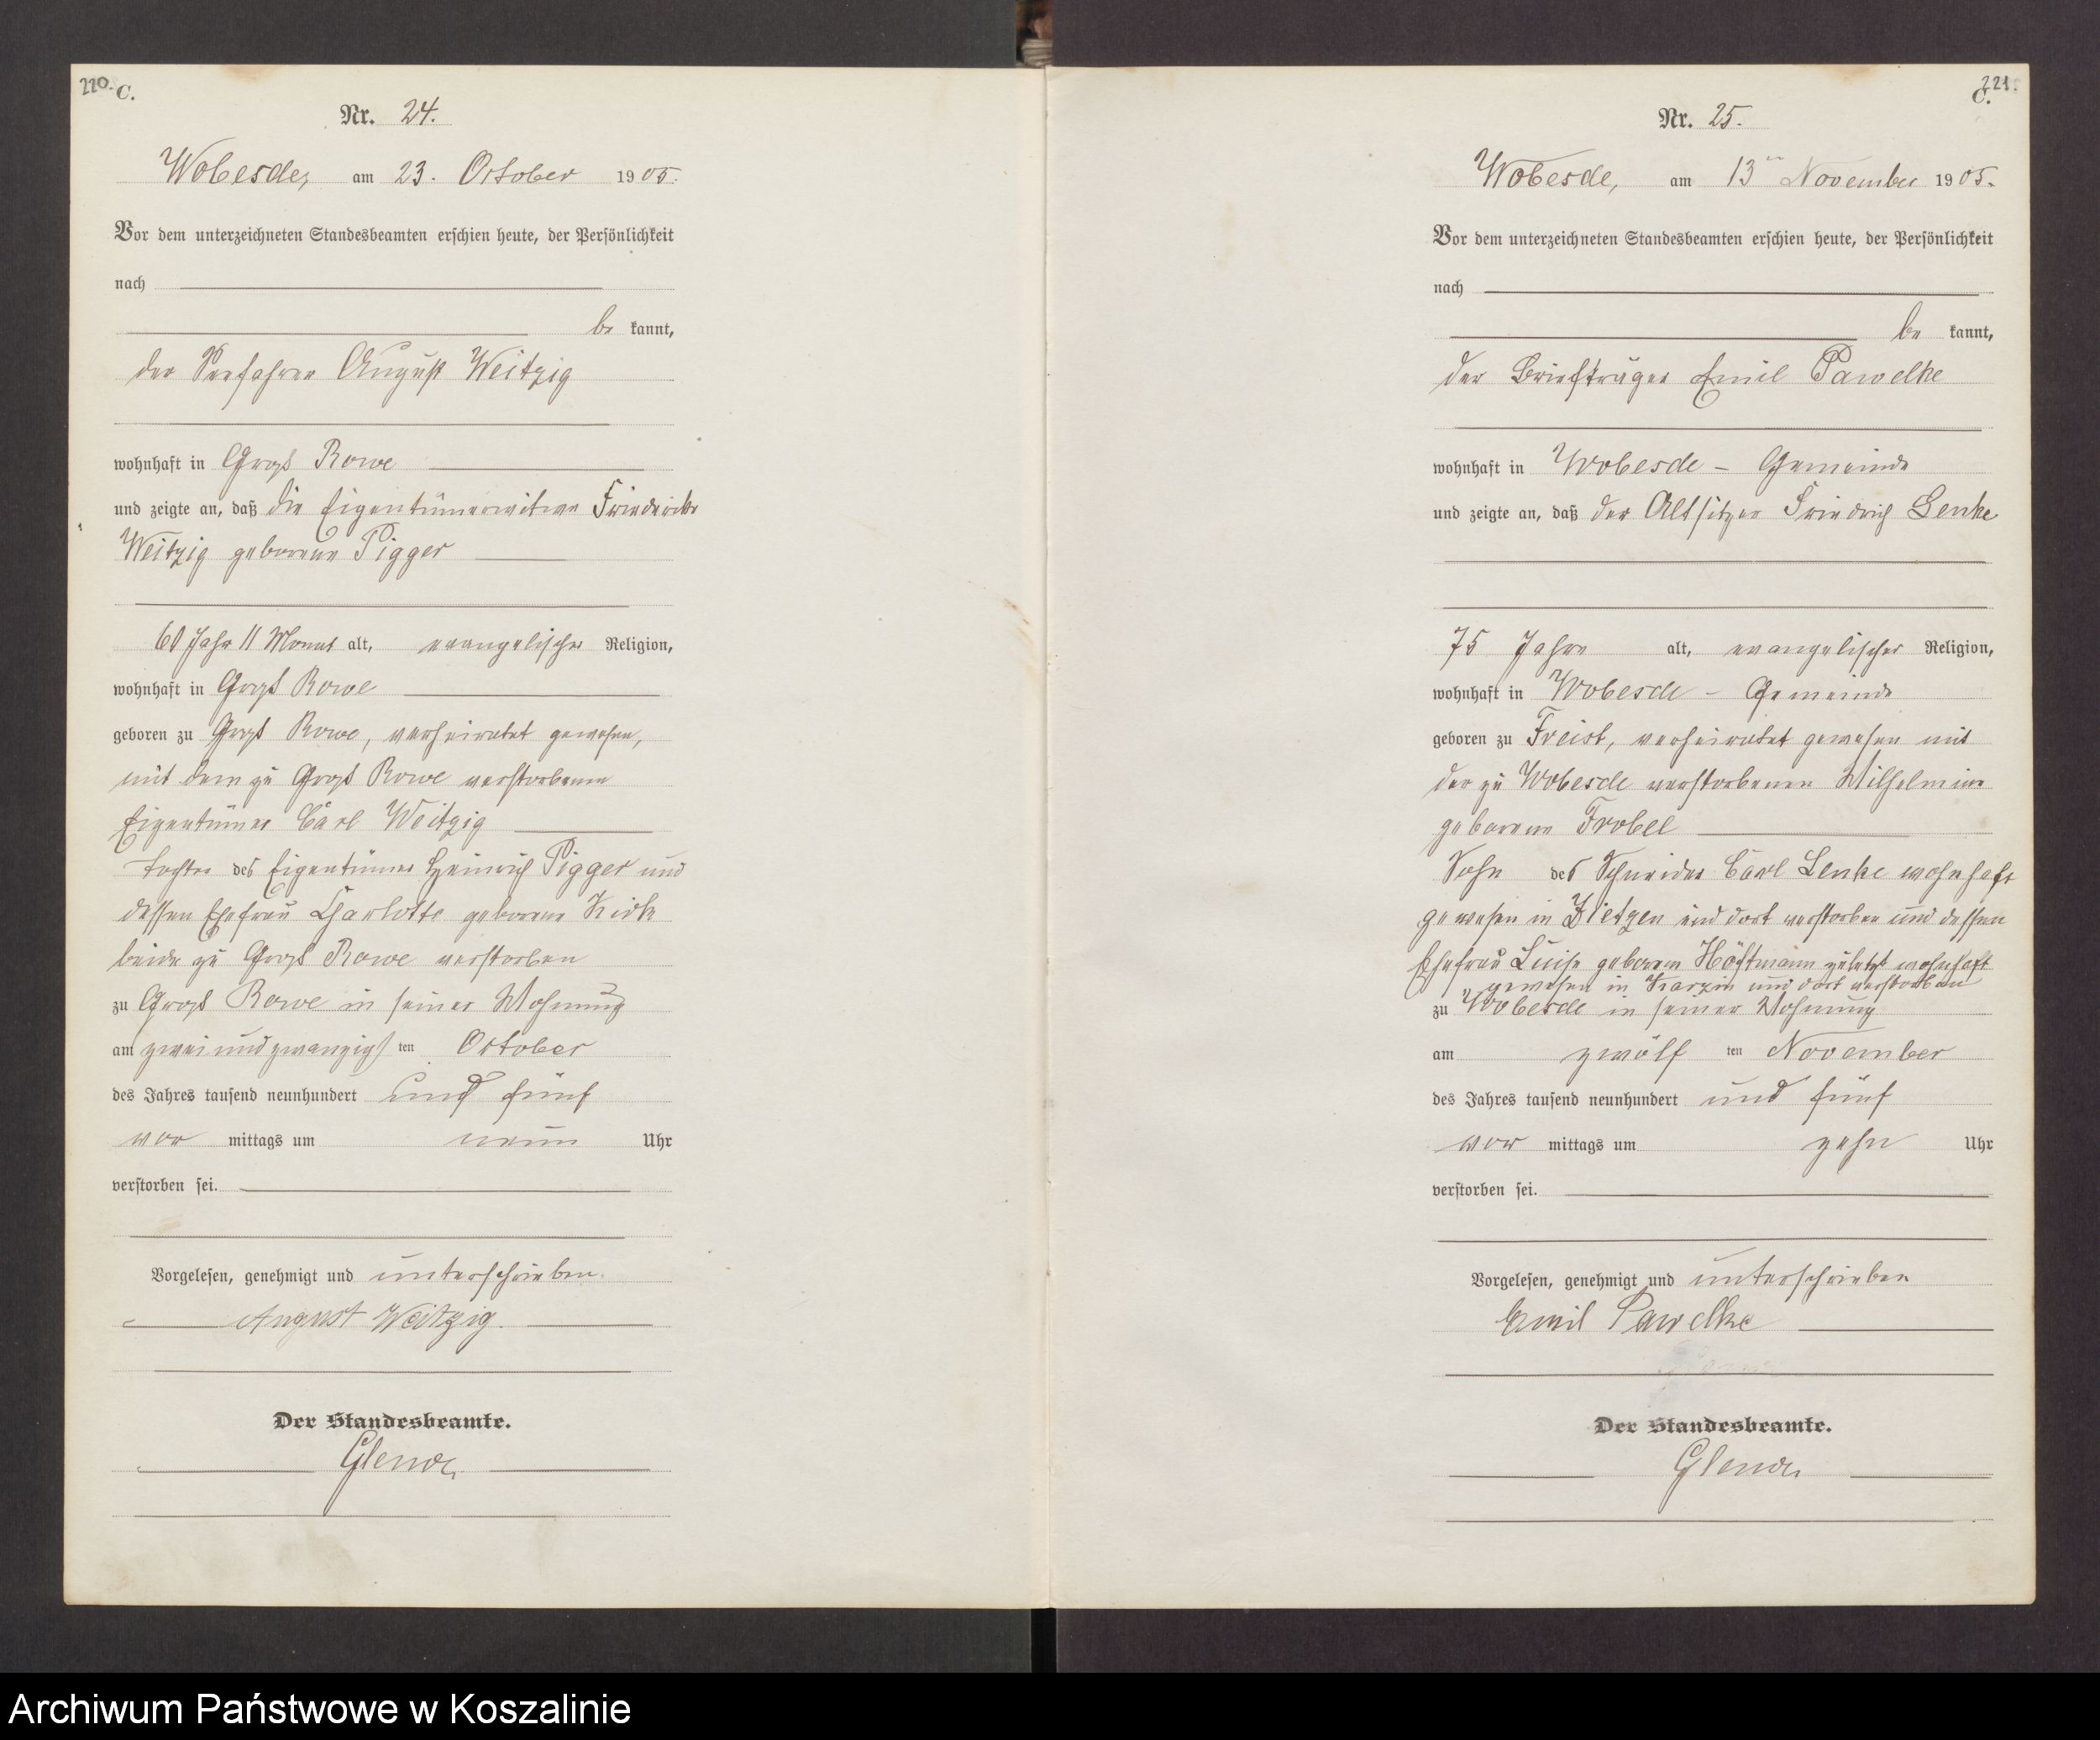 220.
C.
Nr. 24.
Wobesde, am 23. October 1905.
Vor dem unterzeichneten Standesbeamten erschien heute, der Persönlichkeit
nach
be kannt,
der Seefahrer August Weitzig
wohnhaft in Groß Rowe
und zeigte an, daß die Eigentümerwitwe Friederike
Weitzig geborene Pigger
60 Jahr 11 Monat alt, evangelischer Religion,
wohnhaft in Groß Rowe
geboren zu Groß Rowe, verheiratet gewesen,
mit dem zu Groß Rowe verstorbenen
Eigentümer Carl Weitzig
Tochter des Eigentümer Heinrich Pigger und
dessen Ehefrau Charlotte geborene
beide zu Groß Rowe verstorben
zu Groß Rowe in seiner Wohnung
am zwei und zwanzigsten October
des Jahres tausend neunhundert und fünf
vor mittags um neun Uhr
verstorben sei.
Vorgelesen, genehmigt und unterschrieben.
August Weitzig.
Der Standesbeamte.
221.
C.
Nr. 25.
Wobesde, am 13ten November 1905.
Vor dem unterzeichneten Standesbeamten erschien heute, der Persönlichkeit
nach
be kannt,
der Briefträger Emil Pawelke
wohnhaft in Wobesde - Gemeinde
und zeigte an, daß der Altsitzer Friedrich Lenke
75 Jahre alt, evangelischer Religion,
wohnhaft in Wobesde - Gemeinde
geboren zu Freist, verheiratet gewesen mit
der zu Wobesde verstorbenen Wilhelmine
geborene Frobel
Sohn des Schneider Carl Lenke wohnhaft
gewesen in Zietzen und dort verstorben und dessen
Ehefrau Luise geborene Höftmann zuletzt wohnhaft
gewesen in Karzin und dort verstorben
zu Wobesde in seiner Wohnung
am zwölf ten November
des Jahres tausend neunhundert und fünf
vor mittags um zehn Uhr
verstorben sei.
Vorgelesen, genehmigt und unterschrieben
Emil Pawelke
Der Standesbeamte.
Archiwum Państwowe w Koszalinie